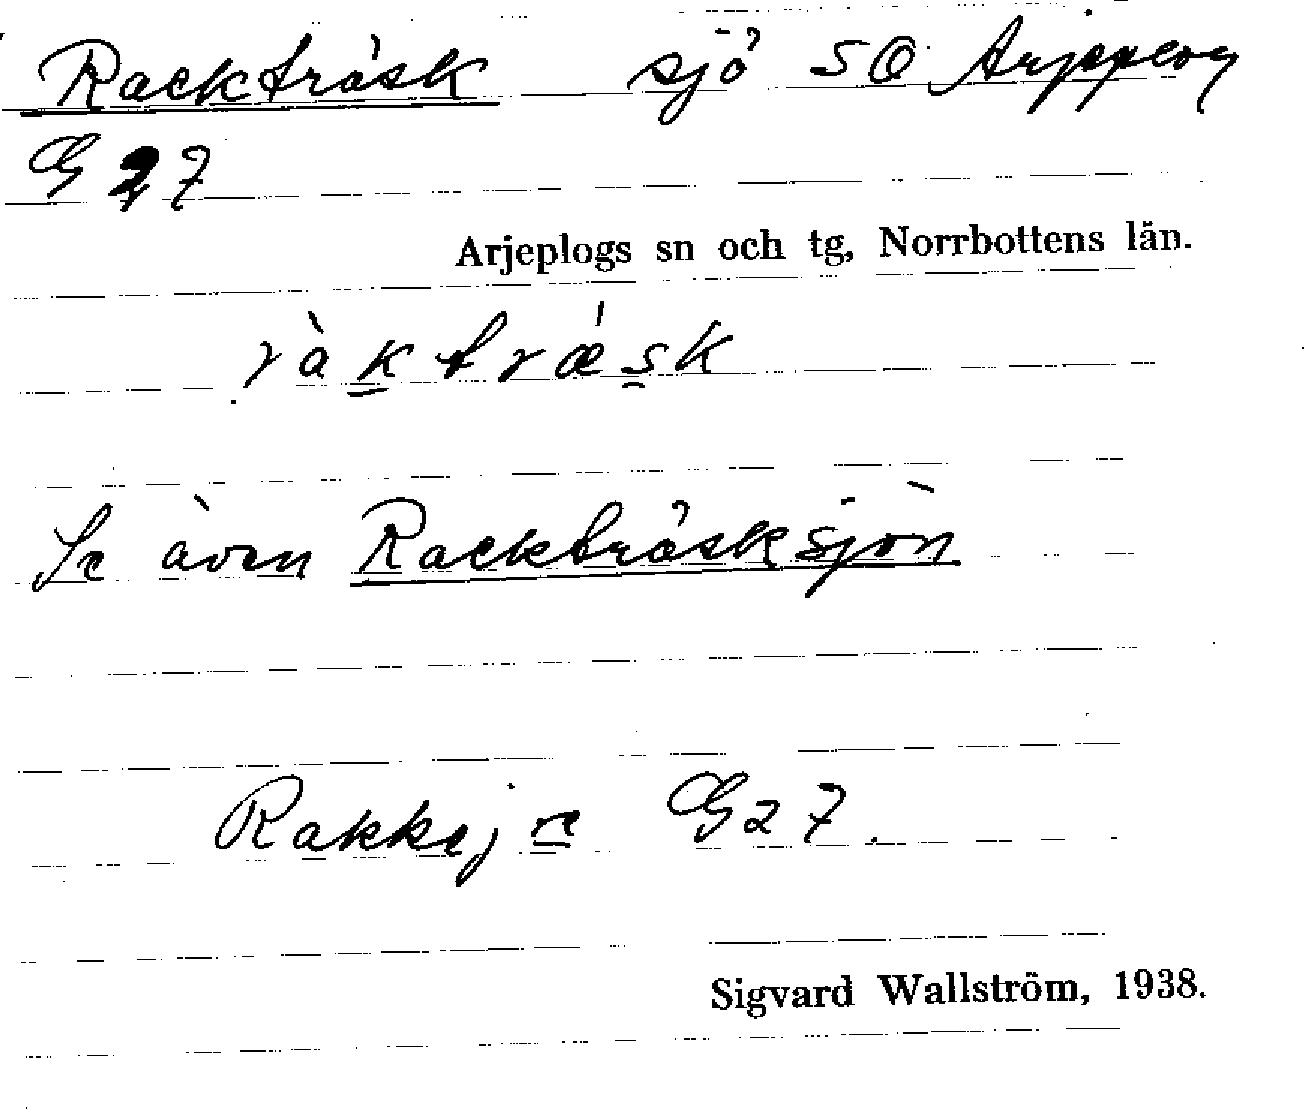 Rackträsk sjö SO Arjeplog
G 27
Arjeplogs sn och tg, Norrbottens län.
ràktrǽsk
Se även Rackträsksjön
G 27.
Sigvard Wallström, 1938.